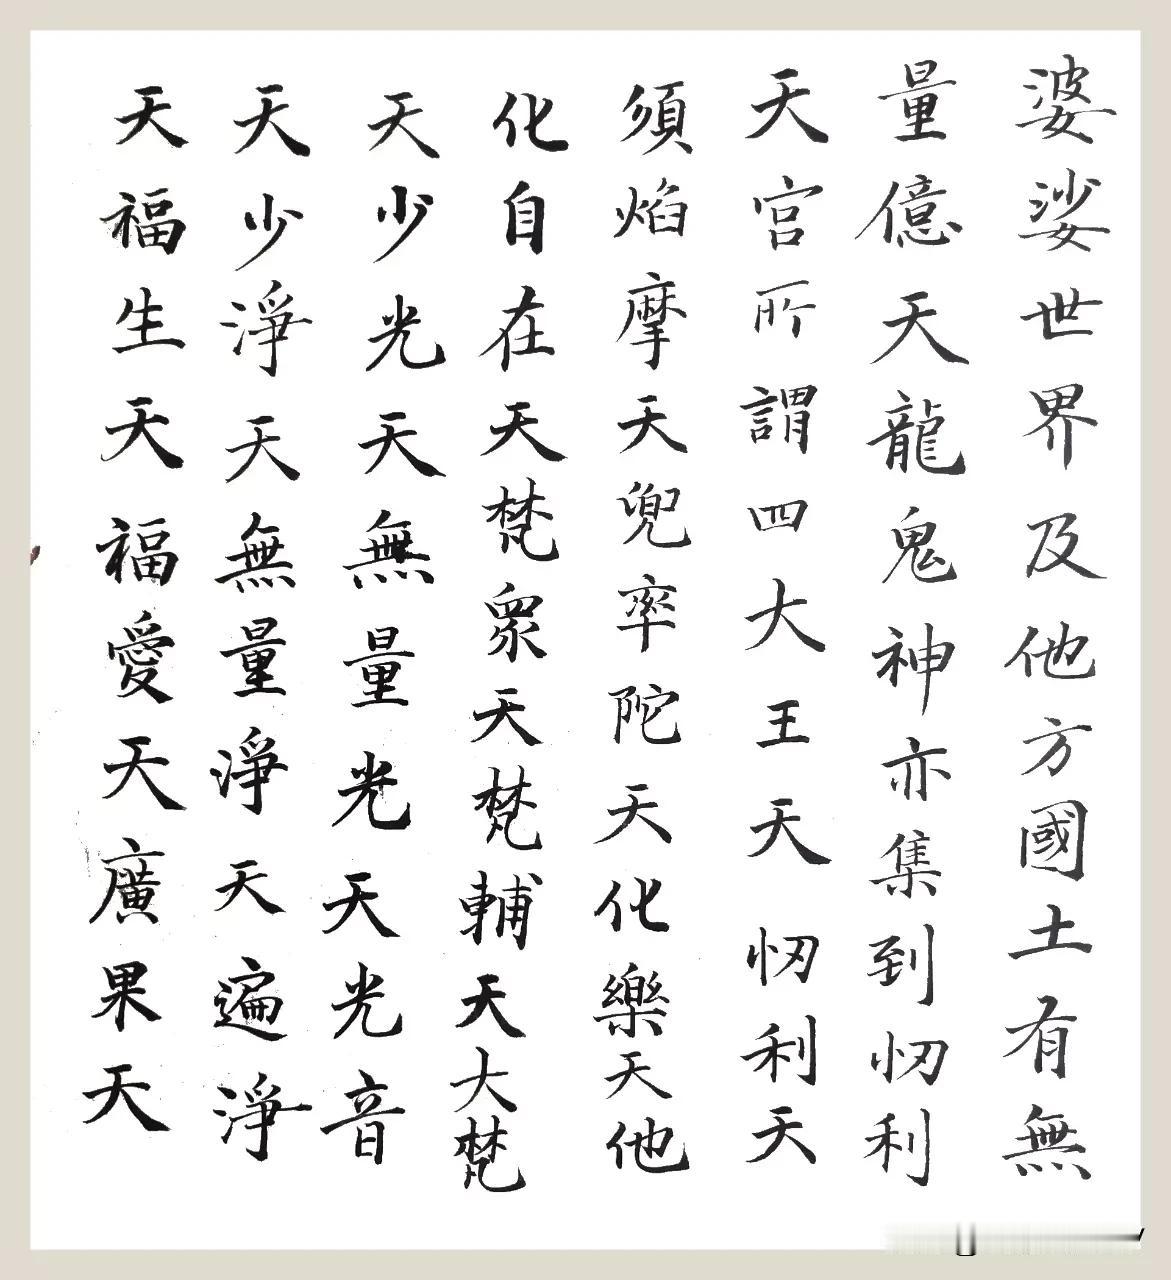 婆娑世界及他方國土有無
量億天龍鬼神亦集到忉利
天宮所謂四大王天忉利天
須焰摩天兜率陀天化樂天他
化自在天梵眾天梵輔天大梵
天少光天無量光天光音
天少淨天無量淨天遍淨
天福生天福愛天廣果天